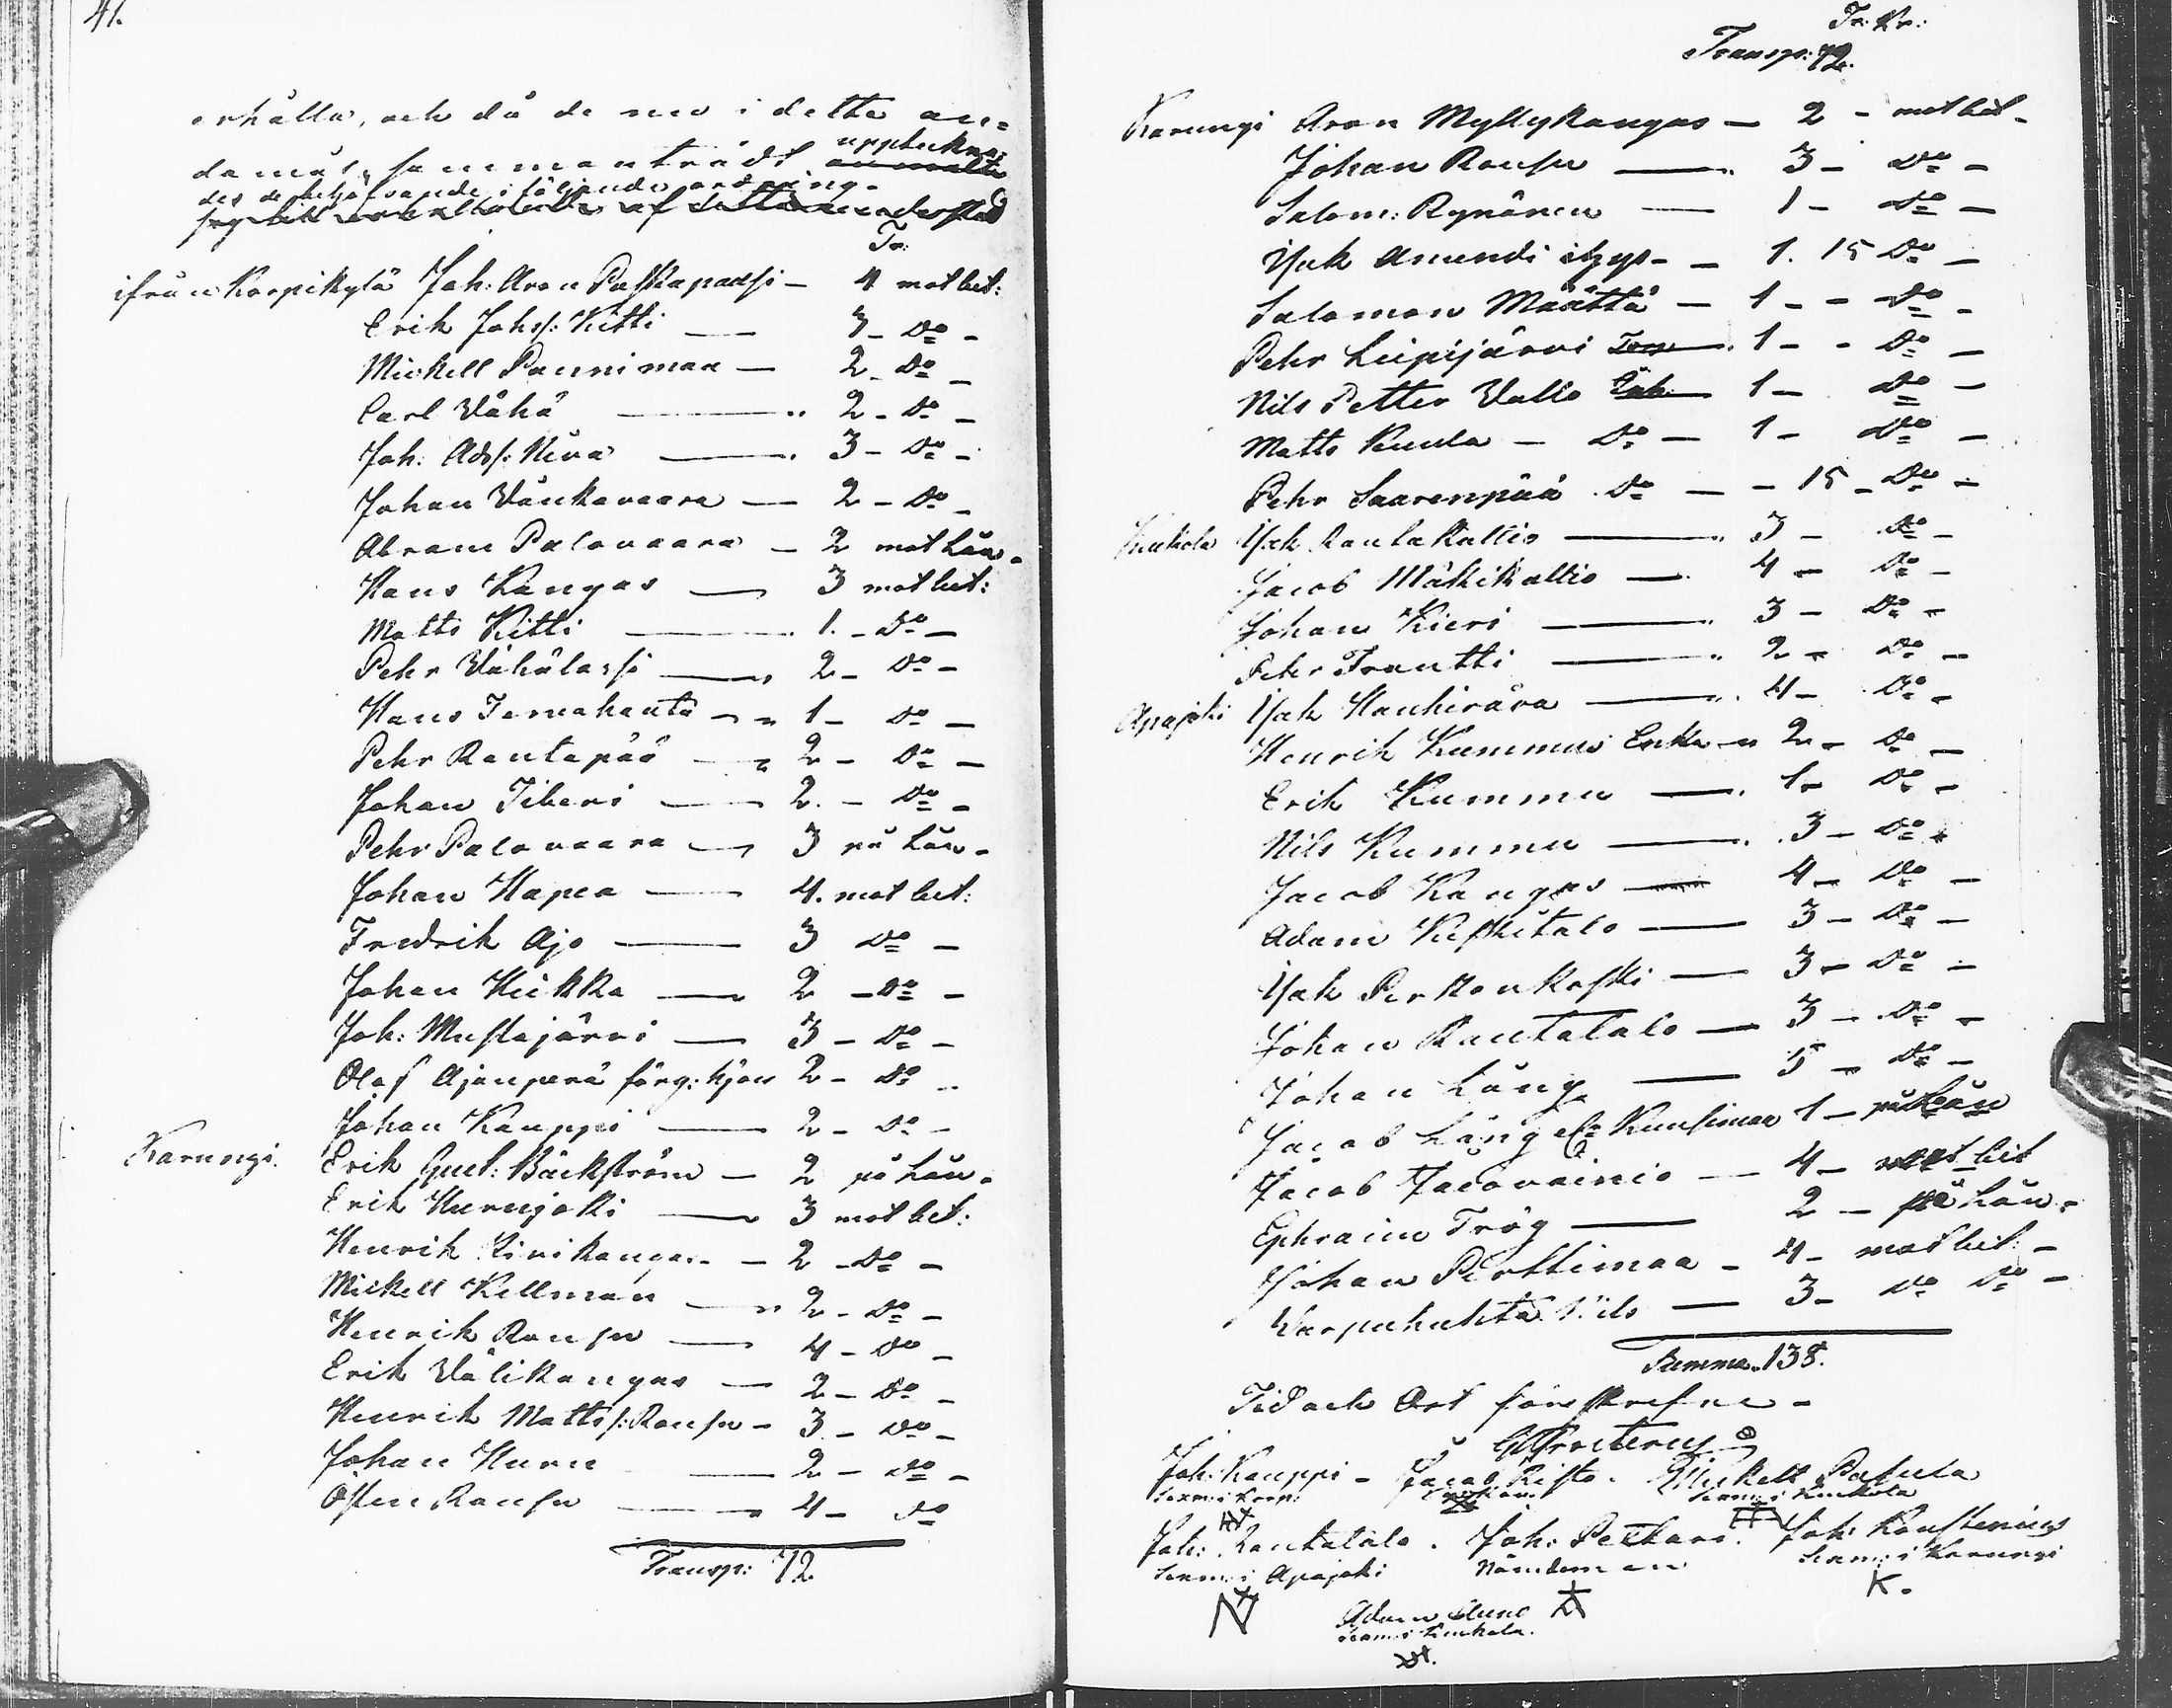 41.
erhålla, och då de nu i detta än=
damål sammanträdt uppteckna=
des de behöfvande i följande ordning.
Tr:
ifrån Korpikylä Joh: Aron Paskapadsi — 4 mot bet:
Erik Johss: Kitti — 3 — Do —
Mickell Pannimaa — 2 — Do —
Carl Vähä — 2 — Do —
Joh: Adss: Niva — 3 — Do —
Johan Vänkavaara — 2 — Do —
Abram Palovaara — 2 mot Lån.
Hans Kangas — 3 mot bet:
Matts Kitti — 1. — Do —
Pehr Vähälassi — 2 — Do —
Hans Jernahauta — 1 — Do —
Pehr Rautapää — 2 — Do —
Johan Jiberi — 2. — Do —
Pehr Palovaara — 3 på Lån.
Johan Hapea — 4. mot bet:
Fredrik Ajo — 3 Do —
Johan Heikka — 2 — Do —
Joh: Mustajärvi — 3 — Do —
Olof Ajanperä färg: hjon 2 — Do —
Johan Kauppi — 2 — Do —
Karungi. Erik Gust: Bäckström — 2 på Lån.
Erik Hurujoki — 3 mot bet:
Henrik Kivikangas — 2 — Do —
Mickell Kellman — 2 — Do —
Henrik Rausu — 4 — Do —
Erik Välikangas — 2 — Do —
Henrik Mattss: Rausu — 3 — Do —
Johan Huru — 2 — Do —
Östen Rausu — 4 — Do
Transp: 72.
Tr: Kr:
Transp: 72.
Karungi Aron Myllykangas — 2 — mot bet —
Johan Rousu — 3 — Do —
Salom: Rynänen — 1 — Do —
Isak Amundi — 1. 15 Do —
Salomon Määttä — 1 — — Do —
Pehr Leipijärvi — 1 — — Do —
Nils Petter Vallo — 1 — Do —
Matts Kuula — Do — 1 — Do —
Pehr Saarenpää Do — — 15 — Do —
Kukola Isak Rautakallio — 3 — Do —
Jacob Mäkikallio — 4 — Do —
Johan Kieri — 3 — Do —
Pehr Frantti — 2 — Do —
Apajoki Isak Hauhiråra — 4 — Do —
Henrik Kummus Enka — 2 — Do —
Erik Kummu — 1 — Do —
Nils Kummu — 3 — Do —
Jacob Kangas — 4 — Do —
Adam Keskitalo — 3 — Do —
Isak Perttonkoski — 3 — Do —
Johan Rautatalo — 3 — Do —
Johan Lång — 5 — Do —
Jacob Lång Kuusimaa 1 — på Lån
Jacob Jacovainio — 4 — mot bet
Ephraim Trög — 2 — på Lån.
Johan Perttimaa — 4 — mot bet: —
Warpuhuhta Nils — 3 — Do Do —
Summa. 138.
Tid och Ort förskrefne —
Joh: Kauppi — Jacob Risto. Mickell Pasula
Sexm: i Korp: Sexm: i Kukola
Joh: Rautatalo. Joh: Pekkari. Joh: Konstenius
Sexm: i Apajoki Nämdeman Sexm: i Karungi
K.
Adam Auno
Sexm: i Kukola.